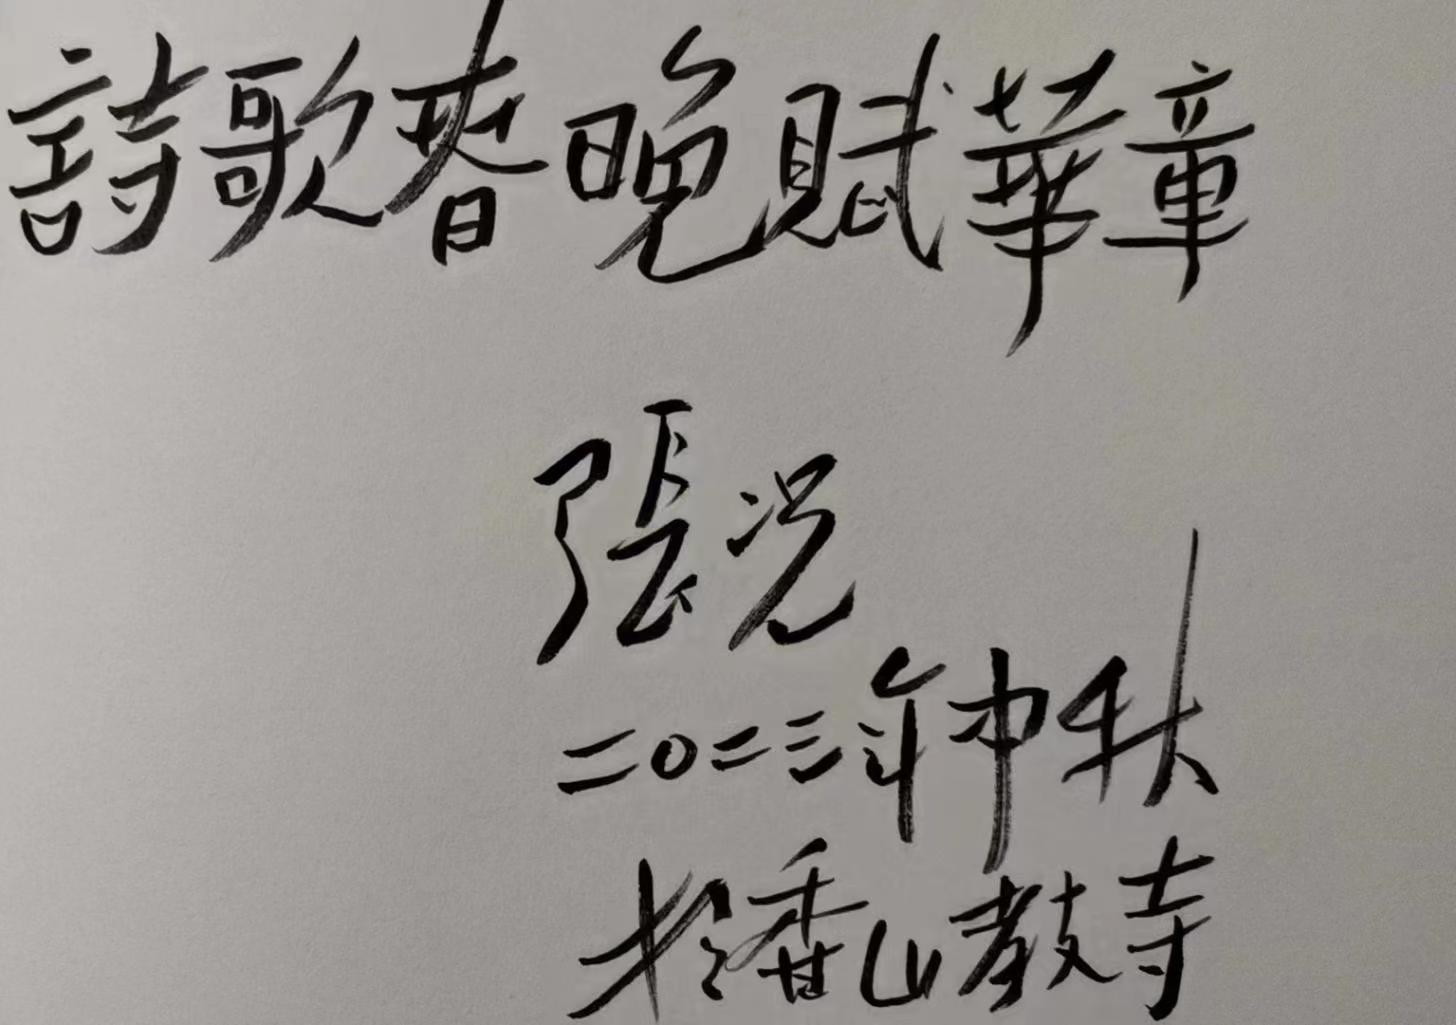 詩歌春晚賦華章
張況
二〇二三年中秋
於香山教寺